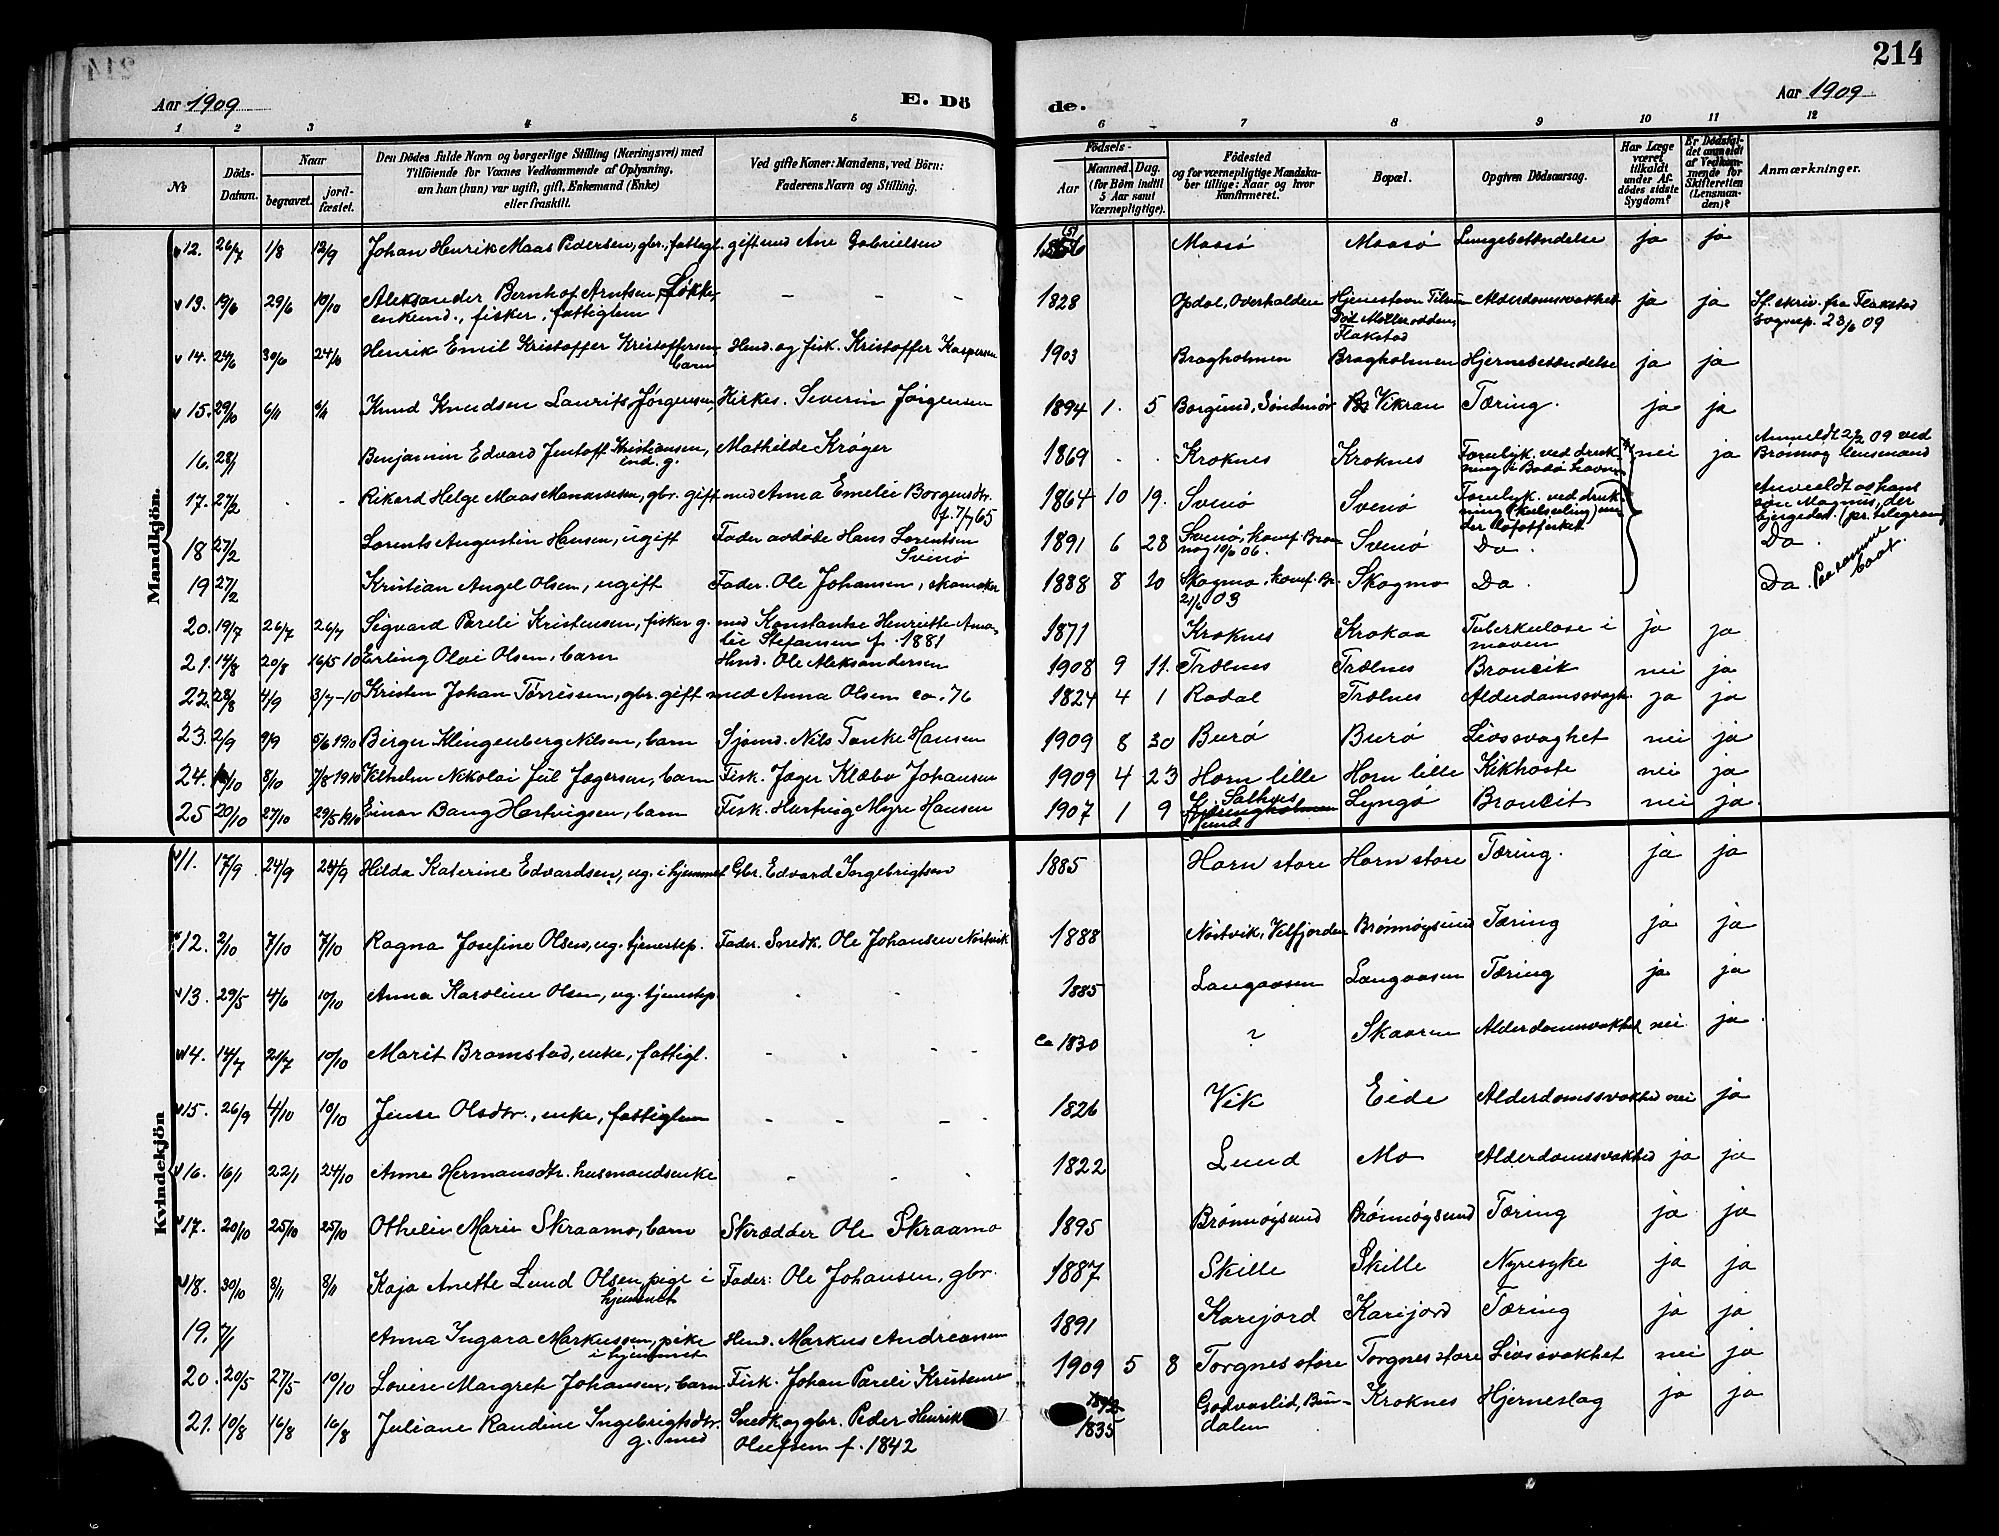 214
Aar 1909
E. Dö
de.
Aar 1909
214
1 2 3 4 5 6 7 8 9 10 11 12
No
Döds-Datum.
Naar
begravet.
jord-fæstet.
Den Dödes fulde Navn og borgerlige Stilling (Næringsvei) med
Tilföiende for Voxnes Vedkommende af Oplysning,
om han (hun) var ugift, gift, Enkemand (Enke)
eller fraskilt.
Ved gifte Koner: Mandens, ved Börn:
Faderens Navn og Stilling.
Födsels-
Aar
Maaned. Dag.
(for Börn indtil
5 Aar samt
Værnepligtige).
Födested
og for værnepligtige Mandska-
ber tillige: Naar og hvor
konfirmeret.
Bopæl.
Opgiven Dödsaarsag.
Har Læge
været
tilkaldt
under Af-
dödes sidste
Sygdom?
Er Dödsfal-
det anmeldt
af Vedkom-
mende for
Skifteretten
(Lensman-
den)?
Anmærkninger.
Mandkjön.
12. 26/7 1/8 12/9 Johan Henrik Maas Pedersen, gbr., fattigl. gift med Ane Gabrielsen Maasö Maasö Lungebetændelse ja ja
13. 19/6 29/6 10/10 Aleksander Bernhof Arntsen Løkke, - - - 1828 Opdal, Overhalden Alderdomssvakhet ja ja Sf. skriv. fra Flakstad
enkemd., fisker, fattiglem Död Mølleroddens, Flakstad sognep. 23/6 09
14. 24/6 30/6 24/10 Henrik Emil Kristoffer Kristoffersen, barn Hmd. og fisk. Kristoffer Kaspersen 1903 Bragholmen Bragholmen Hjernebetændelse ja ja
15. 29/10 6/11 6/11 Knud Knudsen Laurits Jørgensen, Kirkes. Severin Jørgensen 1894 1. 5 Borgund, Söndmör Vikran Tæring. ja ja
16. 28/1 Benjamin Edvard Jentoft Kristiansen, ind. g. Mathilde Krøger 1869 Kroknes Kroknes Forulyk. ved druk-
ning i Bodö havn nei ja Anmeldt 2/2 09 ved
Brönnöy lensmand
17. 27/2 - - Rikard Helge Maas Monassesen, gbr. gift med Anna Emelie Borgensdtr. f. 7/7 65 1864 10 19. Svenö Svenö Forulyk. ved druk-
ning (kulseiling) un-
der Lofotfisket Anmeldt as hans
sön Magnus, der
bjergedes. (pr. telegram)
18 27/2 Lorents Augustin Hansen, ugift Fader avdøde Hans Lorentsen Svenö 1891 6 28 Svenö, konf. Brön-
nöy 10/6 06. Svenö Do. Do.
19 27/2 Kristian Angel Olsen, ugift Fader. Ole Johansen, skomaker 1888 8 20 Skogmo, konf. Br.
21/6 03 Skogmo Do. Do. Paa samme
baat.
20. 19/7 26/7 26/7 Sigvard Pareli Kristensen, fisker g. med Konstantse Henriette Ama-
lie Stefansen f. 1881 1871 Kroknes Krokaa Tuberkulose i
maven ja ja
21. 14/8 20/8 16/5 10 Erling Olai Olsen, barn Hmd. Ole Aleksandersen 1908 9 11. Trælnes Trælnes Broncit nei ja
22. 28/8 4/9 3/7-10 Kristen Johan Tørrissen, gbr. gift med Anna Olsen ca. 76 1824 4 1 Rodal Trælnes Alderdomssvagh. ja ja
23. 2/9 9/9 5/6 1910 Birger Klingenberg Nilsen, barn Sjömd. Nils Tanke Hansen 1909 8 30 Burö Burö Livssvaghet nei ja
24. 8/10 7/8 1910 Vilhelm Nikolai Jul Jægersen, barn Fisk. Jæger Klæbo Johansen 1909 4 23 Horn lille Horn lille Kikhoste nei ja
25 20/10 27/10 29/5 1910 Einar Bang Hartvigsen, barn Fisk. Hartvig Myre Hansen 1907 1 9 Lyngö Broncit nei ja.
Kvindekjön
11. 17/9 24/9 24/9 Hilda Katerine Edvardsen, ug. i hjemmet Gbr. Edvard Ingebrigtsen 1885 Horn store Horn store Tæring. ja ja
12. 2/10 7/10 7/10 Ragna Josefine Olsen, ug. tjenestep. Fader. Snedk. Ole Johansen Nöstvik 1888 Nöstvik, Velfjorden Brønnøysund Tæring ja ja
13. 29/5 4/6 10/10 Anna Karoline Olsen, ug. tjenestep. - - 1885 Langaasen Langaasen Tæring ja ja
14. 14/7 21/7 10/10 Marit Bromstad, enke, fattigl. - - - ca 1830 ? Skaaren Alderdomssvakhet nei ja
15. 26/9 4/10 10/10 Jense Olsdtr., enke, fattiglem - - - 1826 Vik Eide Alderdomssvakhed nei ja
16. 16/1 22/1 24/10 Anne Hermansdtr. husmandsenke - - - 1822 Lund Mo Alderdomssvakhed ja ja
17. 20/10 25/10 25/10 Othelie Marie Skraamo, barn Skrædder Ole Skraamo 1895 Brønnøysund Brønnøysund Tæring ja ja
18. 30/10 8/11 8/11 Kaja Anette Lund Olsen, pige i
hjemmet Fader: Ole Johansen, gbr. 1887 Skille Skille Nyresyke ja ja
19. 7/1 Anna Ingara Markussen, pike
i hjemmet Hmd. Markus Andreassen 1891 Karijord Karijord Tæring ja ja
20. 20/5 27/5 10/10 Lovise Margrete Johansen, barn Fisk. Johan Pareli Kristensen 1909 5 8 Torgnes store Torgnes store Livssvakhet nei ja
21. 10/8 16/8 16/8 Juliane Randine Ingebrigtsdtr.
g. med Snedk. og gbr. Peder Henrik
Olufsen f. 1842 1835 Godvaslid, Bin-
dalen Kroknes Hjerneslag ja ja